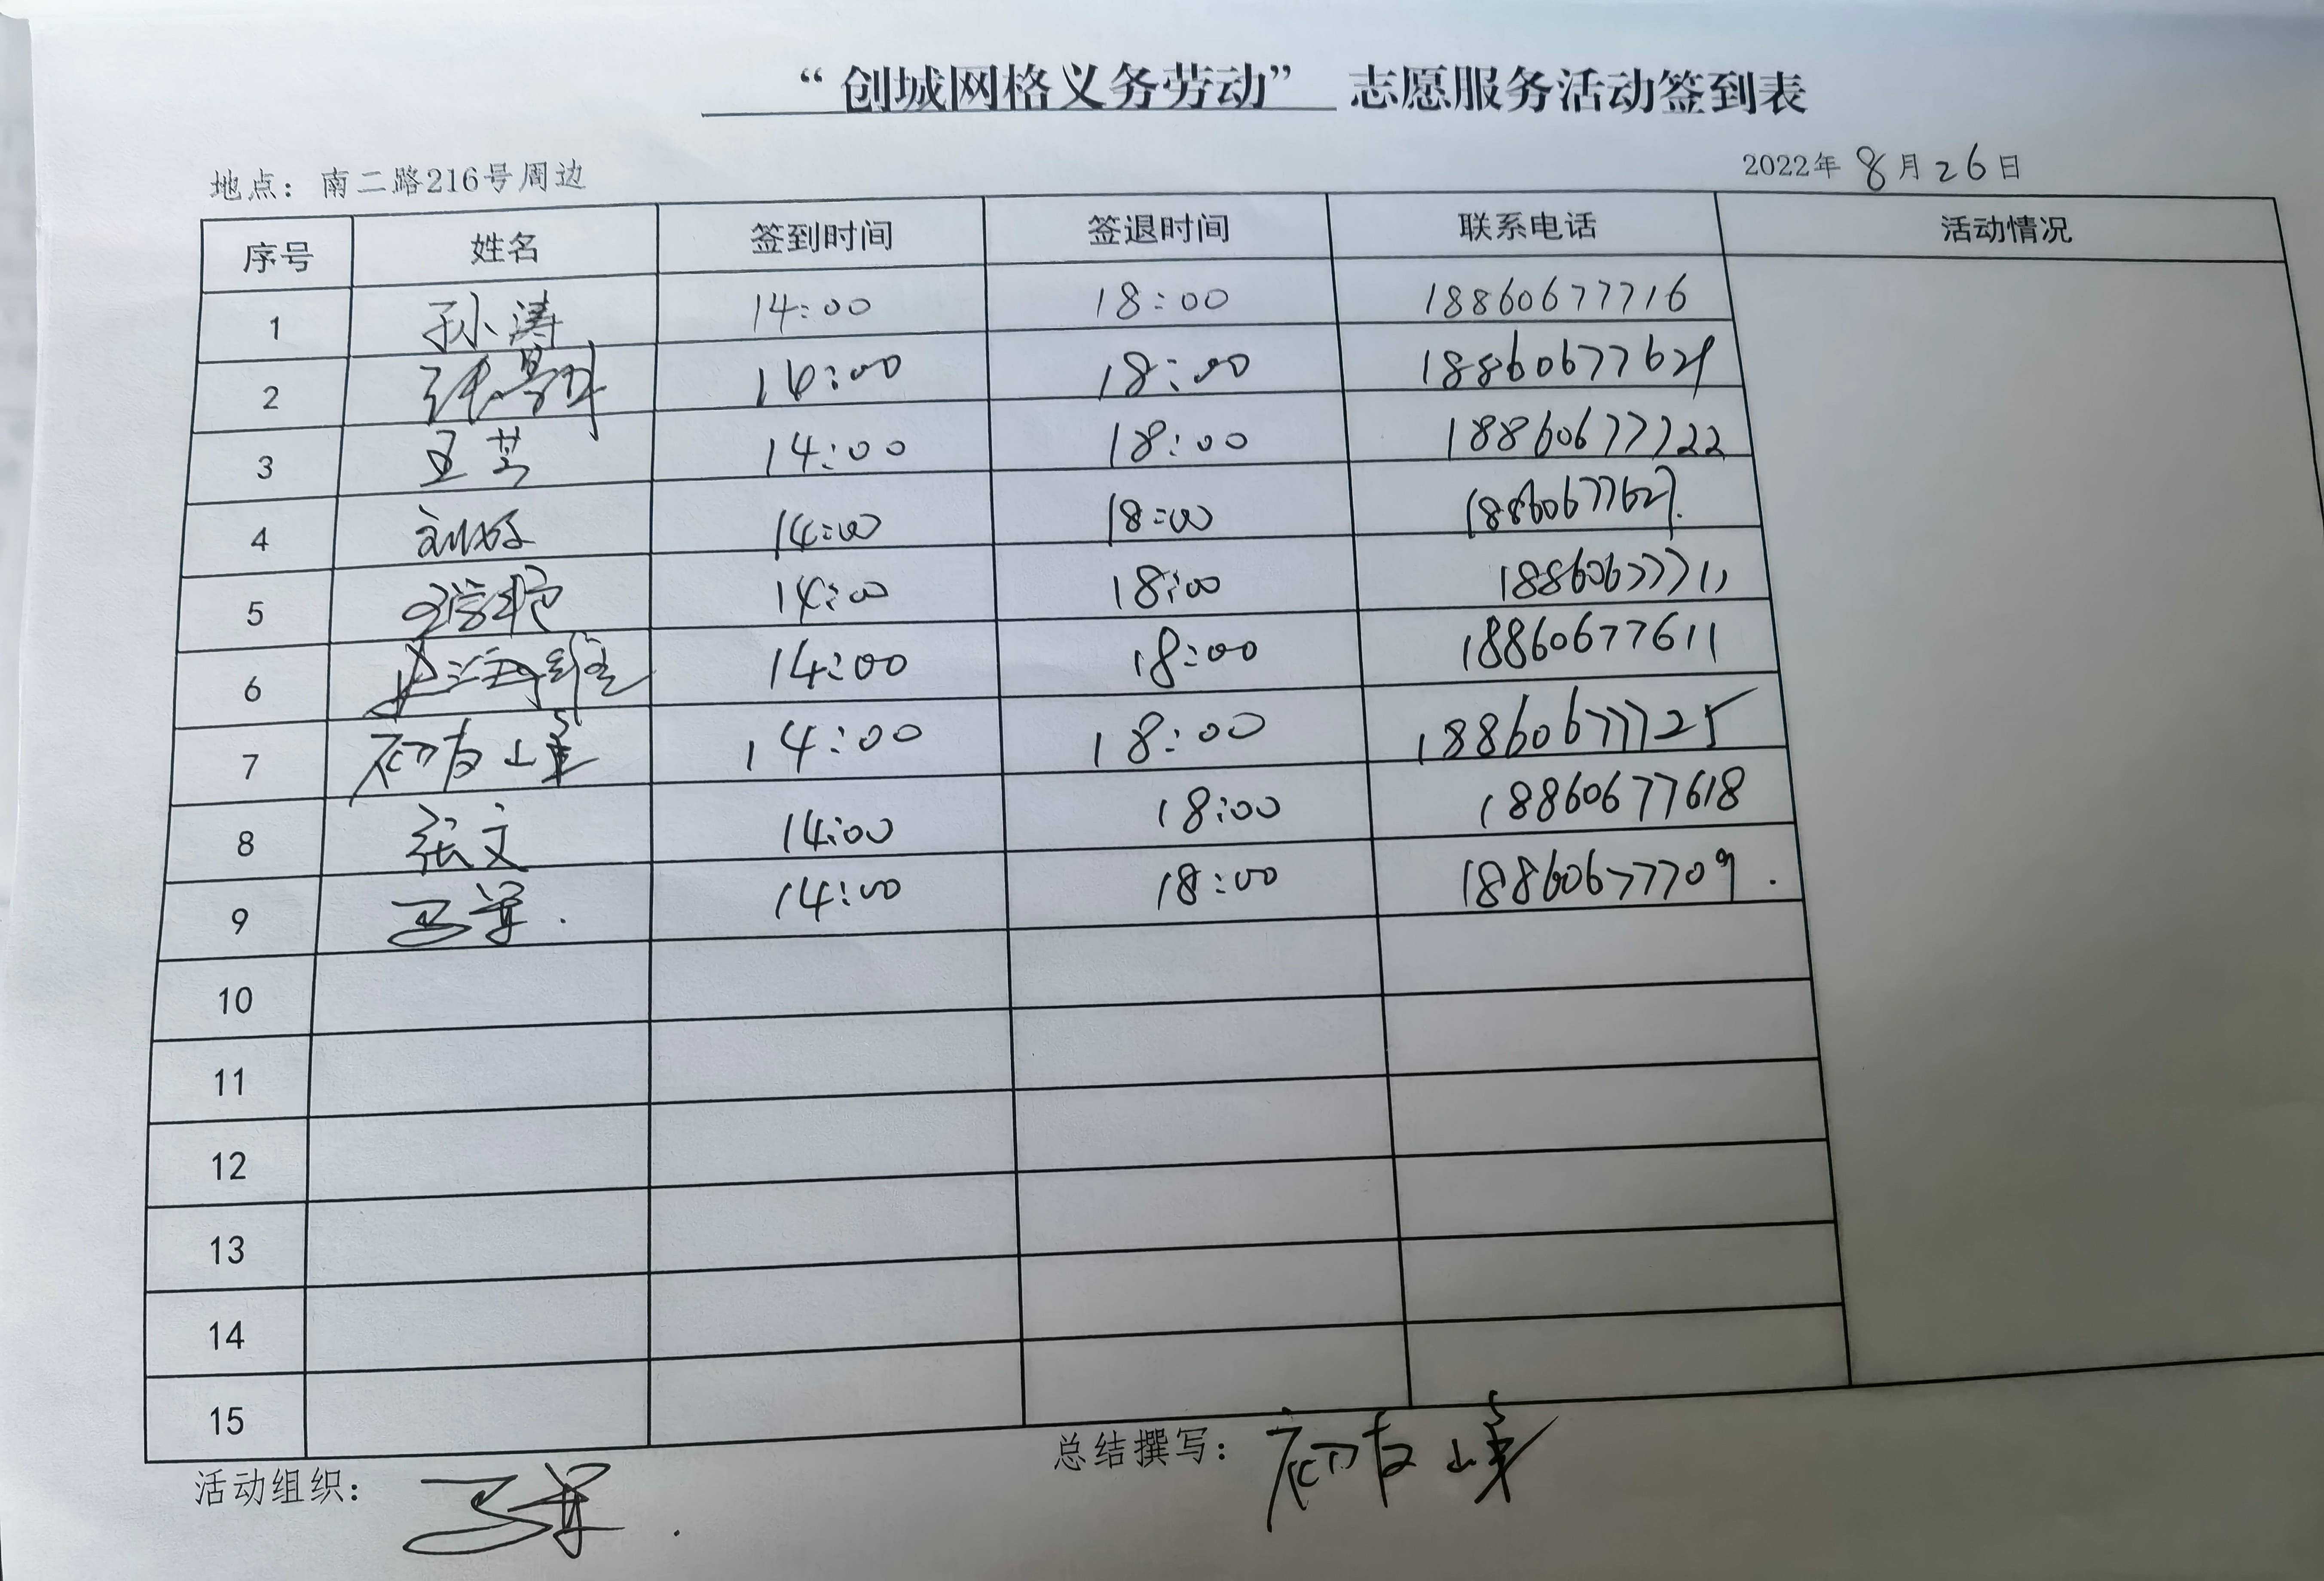 “创城网格义务劳动” 志愿服务活动签到表
地点：南二路216号周边 2022年 8月26日
序号 姓名 签到时间 签退时间 联系电话 活动情况
1 孙涛 14:00 18:00 18860677716
2 14:00 18:00
3 14:00 18:00 18860677722
4 14:00 18:00
5 14:00 18:00 18860677711
6 14:00 18:00 18860677611
7 14:00 18:00 18860677725
8 张文 14:00 18:00 18860677618
9 14:00 18:00 18860677709.
10
11
12
13
14
15
活动组织： 总结撰写：